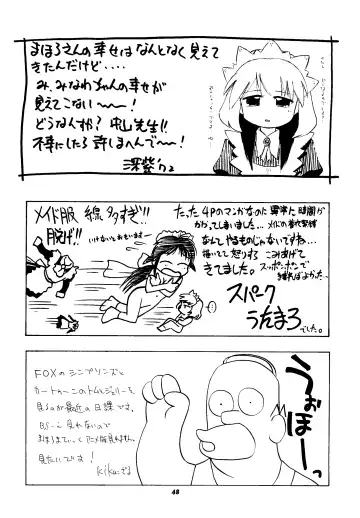 まほろさんの幸せはなんとなく見えて
きたんだけど・・・・
み、みなわちゃんの幸せが
見えてこない〜〜〜!
どうなんすか?中山先生!!
不幸にしたら許しまへんで〜!
深紫
メイド服 線多すぎ!!
脱げ!!
いけないと思います
たった4Pのマンガなのに異常に時間が
かかってしまいました…
メイドの
なんて やるものじゃないですね…
描いてて 怒りすら こみあげて
きてました。
スッポンポンで
スパーク
うたまろ
でした。
FOXのシンプソンズと
カートゥーンのトムとジェリーを
見るのが最近の日課です。
BS-i 見れないので
まほろまてぃっく アニメ版見れません。
見たいです!
kikuでした
うおほーっ
48